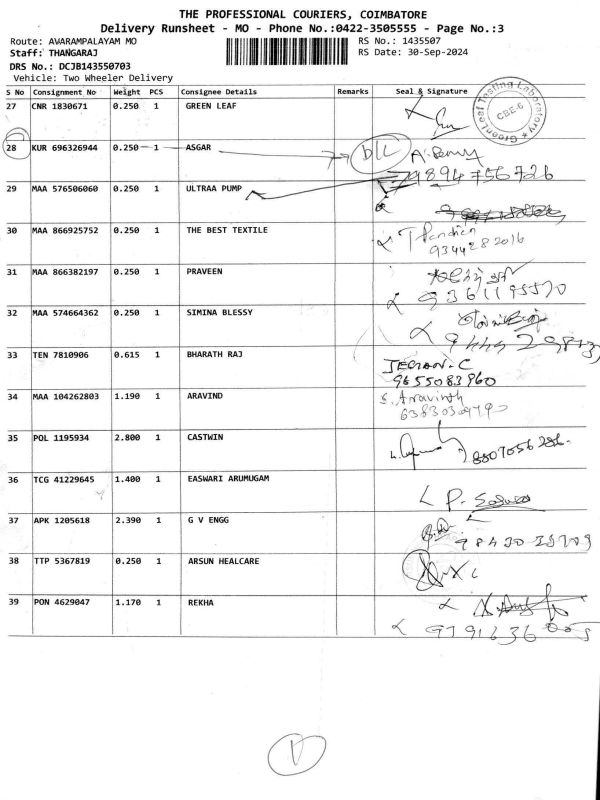 THE PROFESSIONAL COURIERS, COIMBATORE
Delivery Runsheet - MO - Phone No.:0422-3505555 - Page No.:3
Route: AVARAMPALAYAM MO RS No.: 1435507
Staff: THANGARAJ RS Date: 30-Sep-2024
DRS No.: DCJB143550703
Vehicle: Two Wheeler Delivery
S No Consignment No Weight PCS Consignee Details Remarks Seal & Signature
27 CNR 1830671 0.250 1 GREEN LEAF
GreenLeaf Testing Laboratory
CBE-6
28 KUR 696326944 0.250 1 ASGAR D/L
9894756726
29 MAA 576506060 0.250 1 ULTRAA PUMP
30 MAA 866925752 0.250 1 THE BEST TEXTILE T Pandian
9344282016
31 MAA 866382197 0.250 1 PRAVEEN
9361195570
32 MAA 574664362 0.250 1 SIMINA BLESSY
33 TEN 7810906 0.615 1 BHARATH RAJ
9655083960
34 MAA 104262803 1.190 1 ARAVIND S. Aravinth
35 POL 1195934 2.800 1 CASTWIN
8807056286
36 TCG 41229645 1.400 1 EASWARI ARUMUGAM
37 APK 1205618 2.390 1 G V ENGG
38 TTP 5367819 0.250 1 ARSUN HEALCARE
39 PON 4629047 1.170 1 REKHA